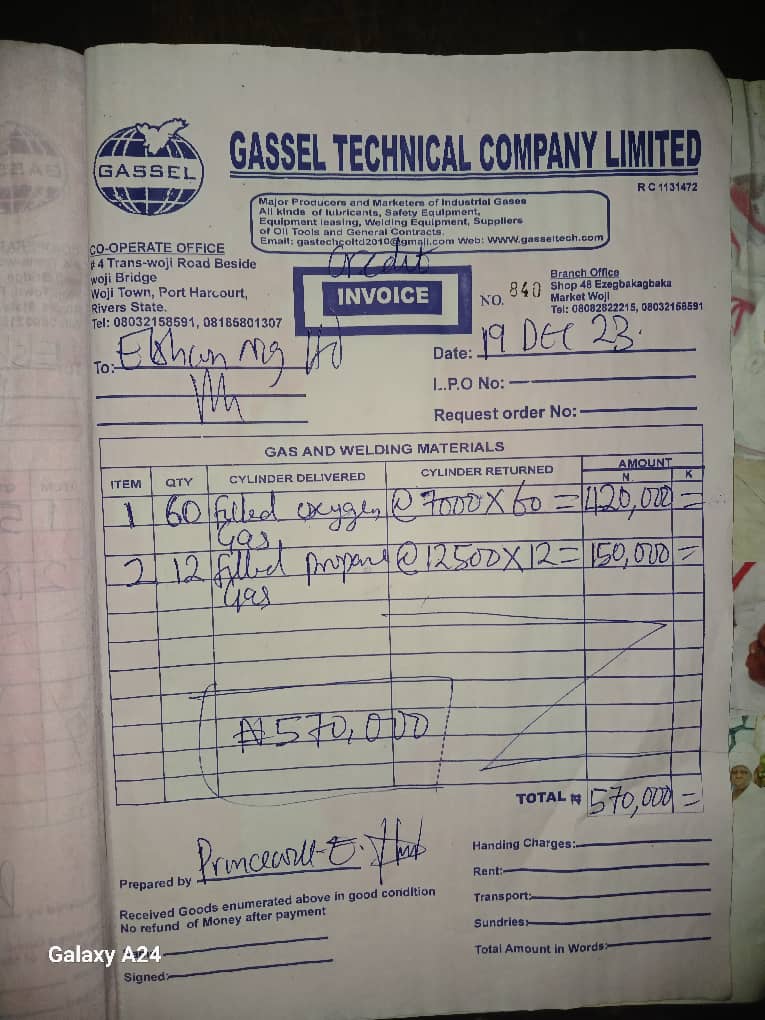 GASSEL
GASSEL TECHNICAL COMPANY LIMITED
R C 1131472
Major Producers and Marketers of Industrial Gases
All kinds of lubricants, Safety Equipment,
Equipment leasing, Welding Equipment, Suppliers
of Oil Tools and General Contracts.
Email: gastechcoltd2010@gmail.com Web: www.gasseltech.com
CO-OPERATE OFFICE
# 4 Trans-woji Road Beside
woji Bridge
Woji Town, Port Harcourt,
Rivers State.
Tel: 08032158591, 08185801307
Credit
INVOICE
NO. 840
Branch Office
Shop 48 Ezegbakagbaka
Market Woji
Tel: 08082822215, 08032158591
To: Nig Ltd
Date: 19 DEC 23.
I..P.O No:
Request order No:
GAS AND WELDING MATERIALS
ITEM QTY CYLINDER DELIVERED CYLINDER RETURNED AMOUNT
N K
1 60 filled oxygen @ 7000 X 60 = 420,000 =
Gas,
2 12 filled propane @ 12500 X 12 = 150,000 =
Gas
₦570,000
TOTAL ₦ 570,000 =
Prepared by Princewill E.
Received Goods enumerated above in good condition
No refund of Money after payment
Signed:
Handing Charges:
Rent:
Transport:
Sundries:
Total Amount in Words:
Galaxy A24